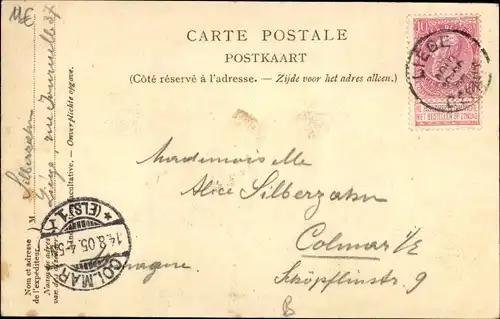 CARTE POSTALE
POSTKAART
(Côté réservé à l'adresse. — Zijde voor het adres alleen.)
10
LIÉGE
NIET BESTELLEN OP ZONDAG
Mademoiselle
Alice Silberzahn
Colmar i/E
Schöpflinstr. 9
B
COLMAR
(ELS) 1.
14.8.05.4-5
Nom et adresse
de l'expéditeur.
M
Silberzahn
Liége, rue 37
facultative. — Onverplichte opgave.